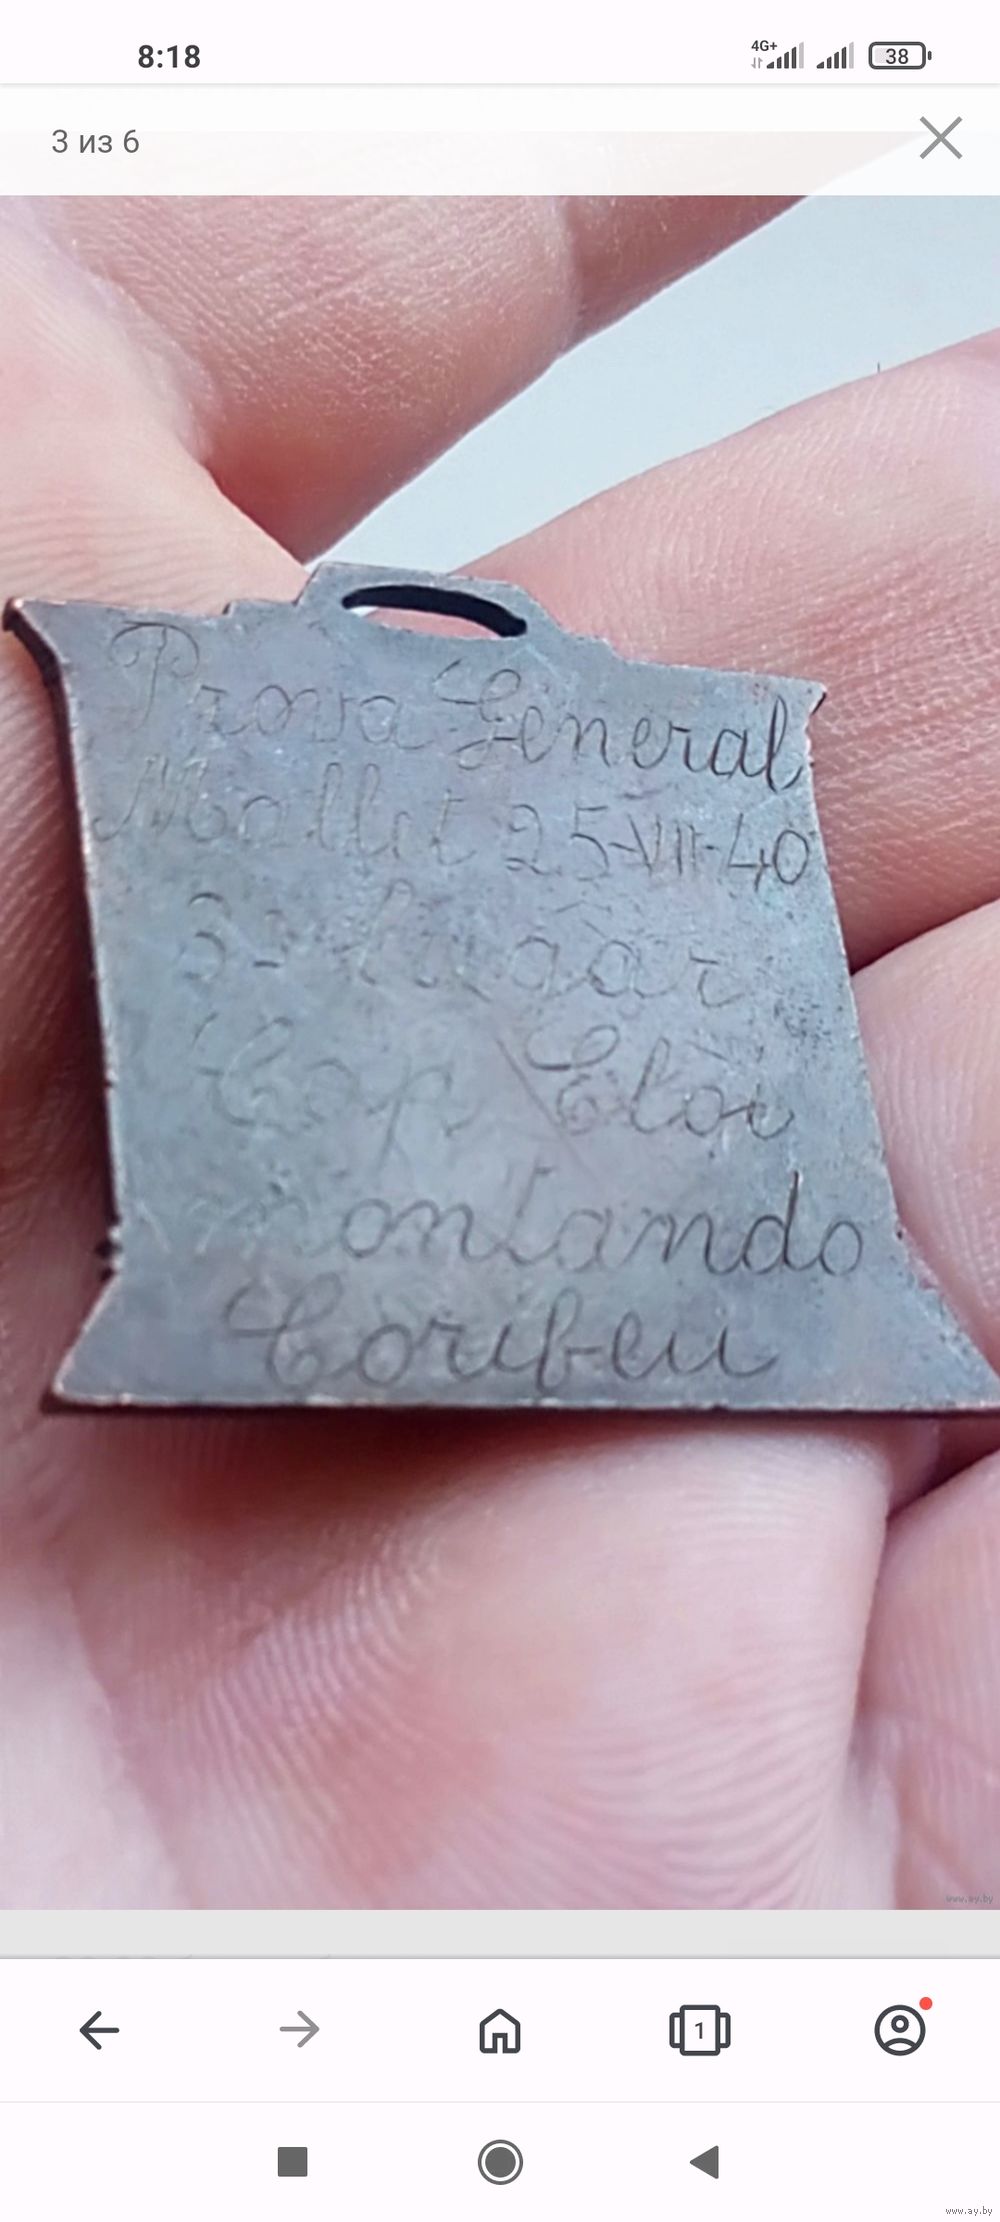 8:18
4G+
38
3 из 6
Prova General
Mallet 25-VII-40
3º lugar
Cap Eloi
montando
Corifeu
www.ay.by
1
www.ay.by